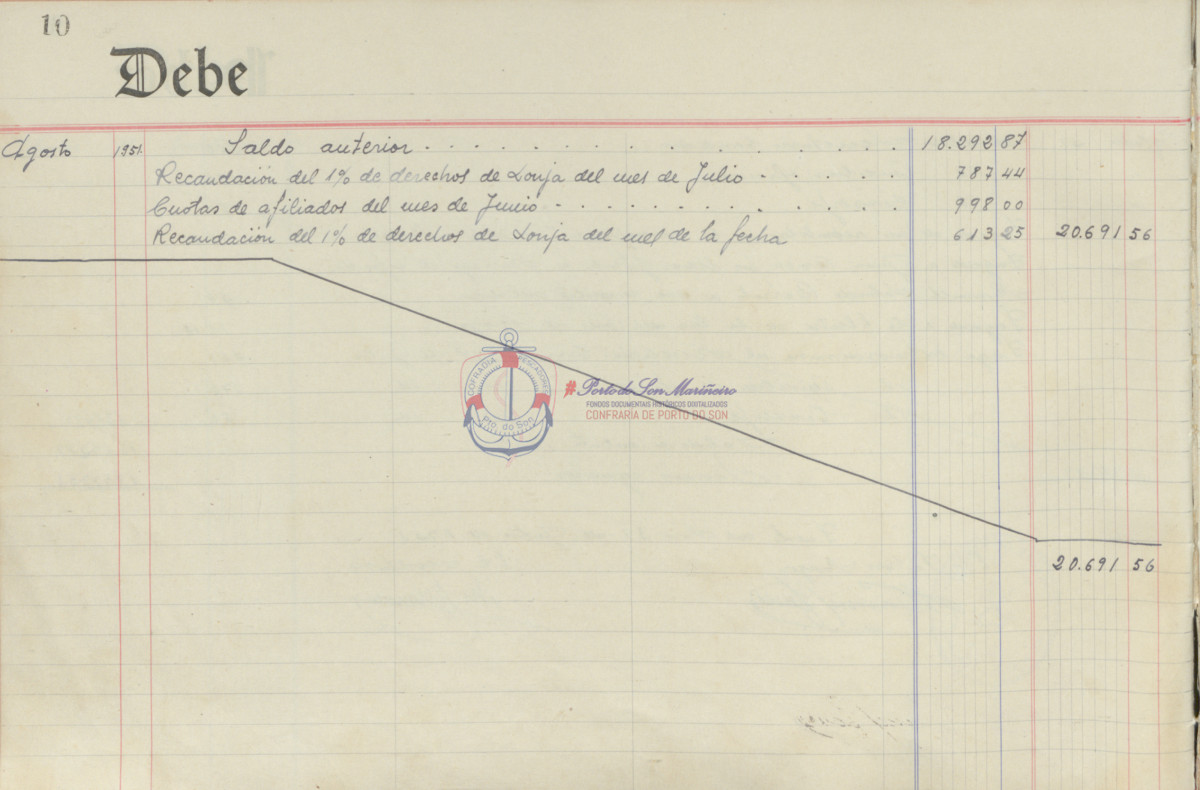 10
Debe
Agosto 1951. Saldo anterior . . . . . . . . . . . 18.292 87
Recaudación del 1% de derechos de Lonja del mes de Julio . . . . . 787 44
Cuotas de afiliados del mes de Junio . . . . . . . . . . . 998 00
Recaudación del 1% de derechos de Lonja del mes de la fecha 613 25 20.691 56
COFRADIA PESCADORES
Pto. do Son
#Porto do Son Mariñeiro
FONDOS DOCUMENTAIS HISTÓRICOS DIXITALIZADOS
CONFRARÍA DE PORTO DO SON
20.691 56